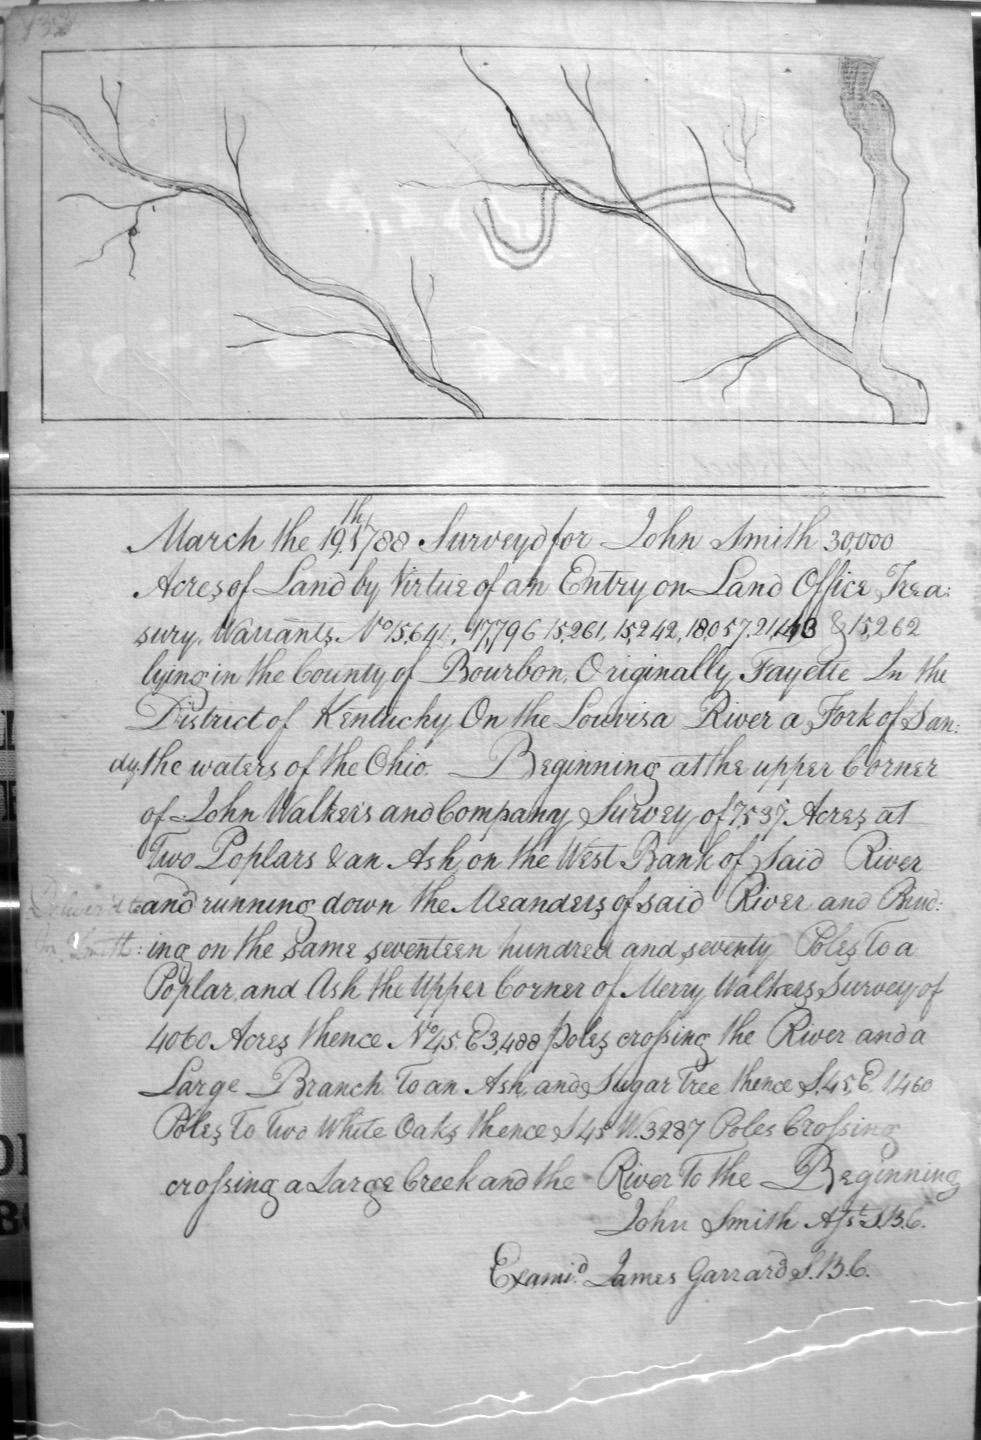 March the 19.th 1788 Survey'd for John Smith 30,000
Acres of Land by Virtue of an Entry on Land Office Trea:
sury, Warrants, No 15,641, 17,796 15,261, 15,242, 18,057. 21143 & 15,262
lying in the County of Bourbon, Originally Fayette In the
District of Kentucky On the Louvisa River a Fork of San:
dy, the waters of the Ohio. Beginning at the upper Corner
of John Walkers and Company Survey of 7,537 Acres at
Two Poplars & an Ash, on the West Bank of Said River
and running down the Meanders of said River and Bind:
ing on the same seventeen hundred and seventy Poles To a
Poplar, and Ash the Upper Corner of Merry Walkers Survey of
4060 Acres thence No 45. E 3,488 poles crossing the River and a
Large Branch To an Ash, and Sugar Tree thence S,45, E 1460
Poles To Two White Oaks thence S 45 W. 3287 Poles Crossing
crossing a Large Creek and the River To the Beginning
John Smith Asst S.B.C.
Examd. James Garrard S.B.C.
Deliver'd to
Jn. Smith: